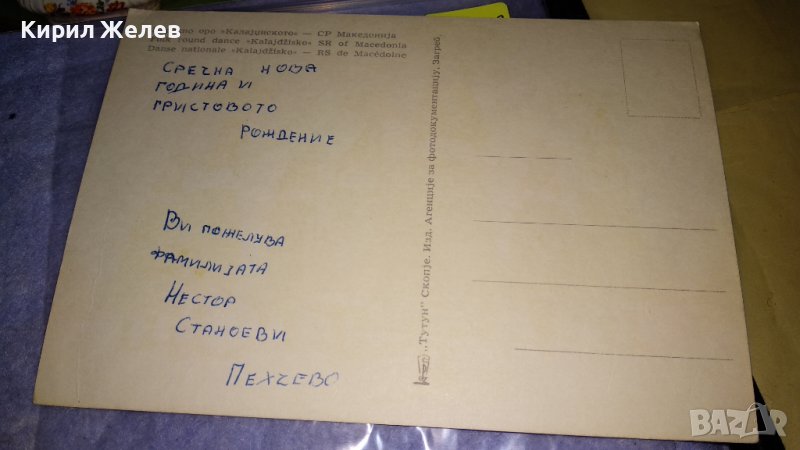 Кирил Желев
оро »Калајџиското« — СР Македонија
round dance »Kalajdžisko« SR of Macedonia
Danse nationale »Kalajdžiske« — RS de Macédoine
СРЕЧНА НОВА
ГОДИНА И
ГРИСТОВОТО
РОЖДЕНИЕ
ВИ ПОЖЕЛУВА
ФАМИЛИЈАТА
НЕСТОР
СТАНОЕВИ
ПЕХЧЕВО
„Тутун" Скопје. Изд. Агенције за фотодокументацију, Загреб,
BAZAR